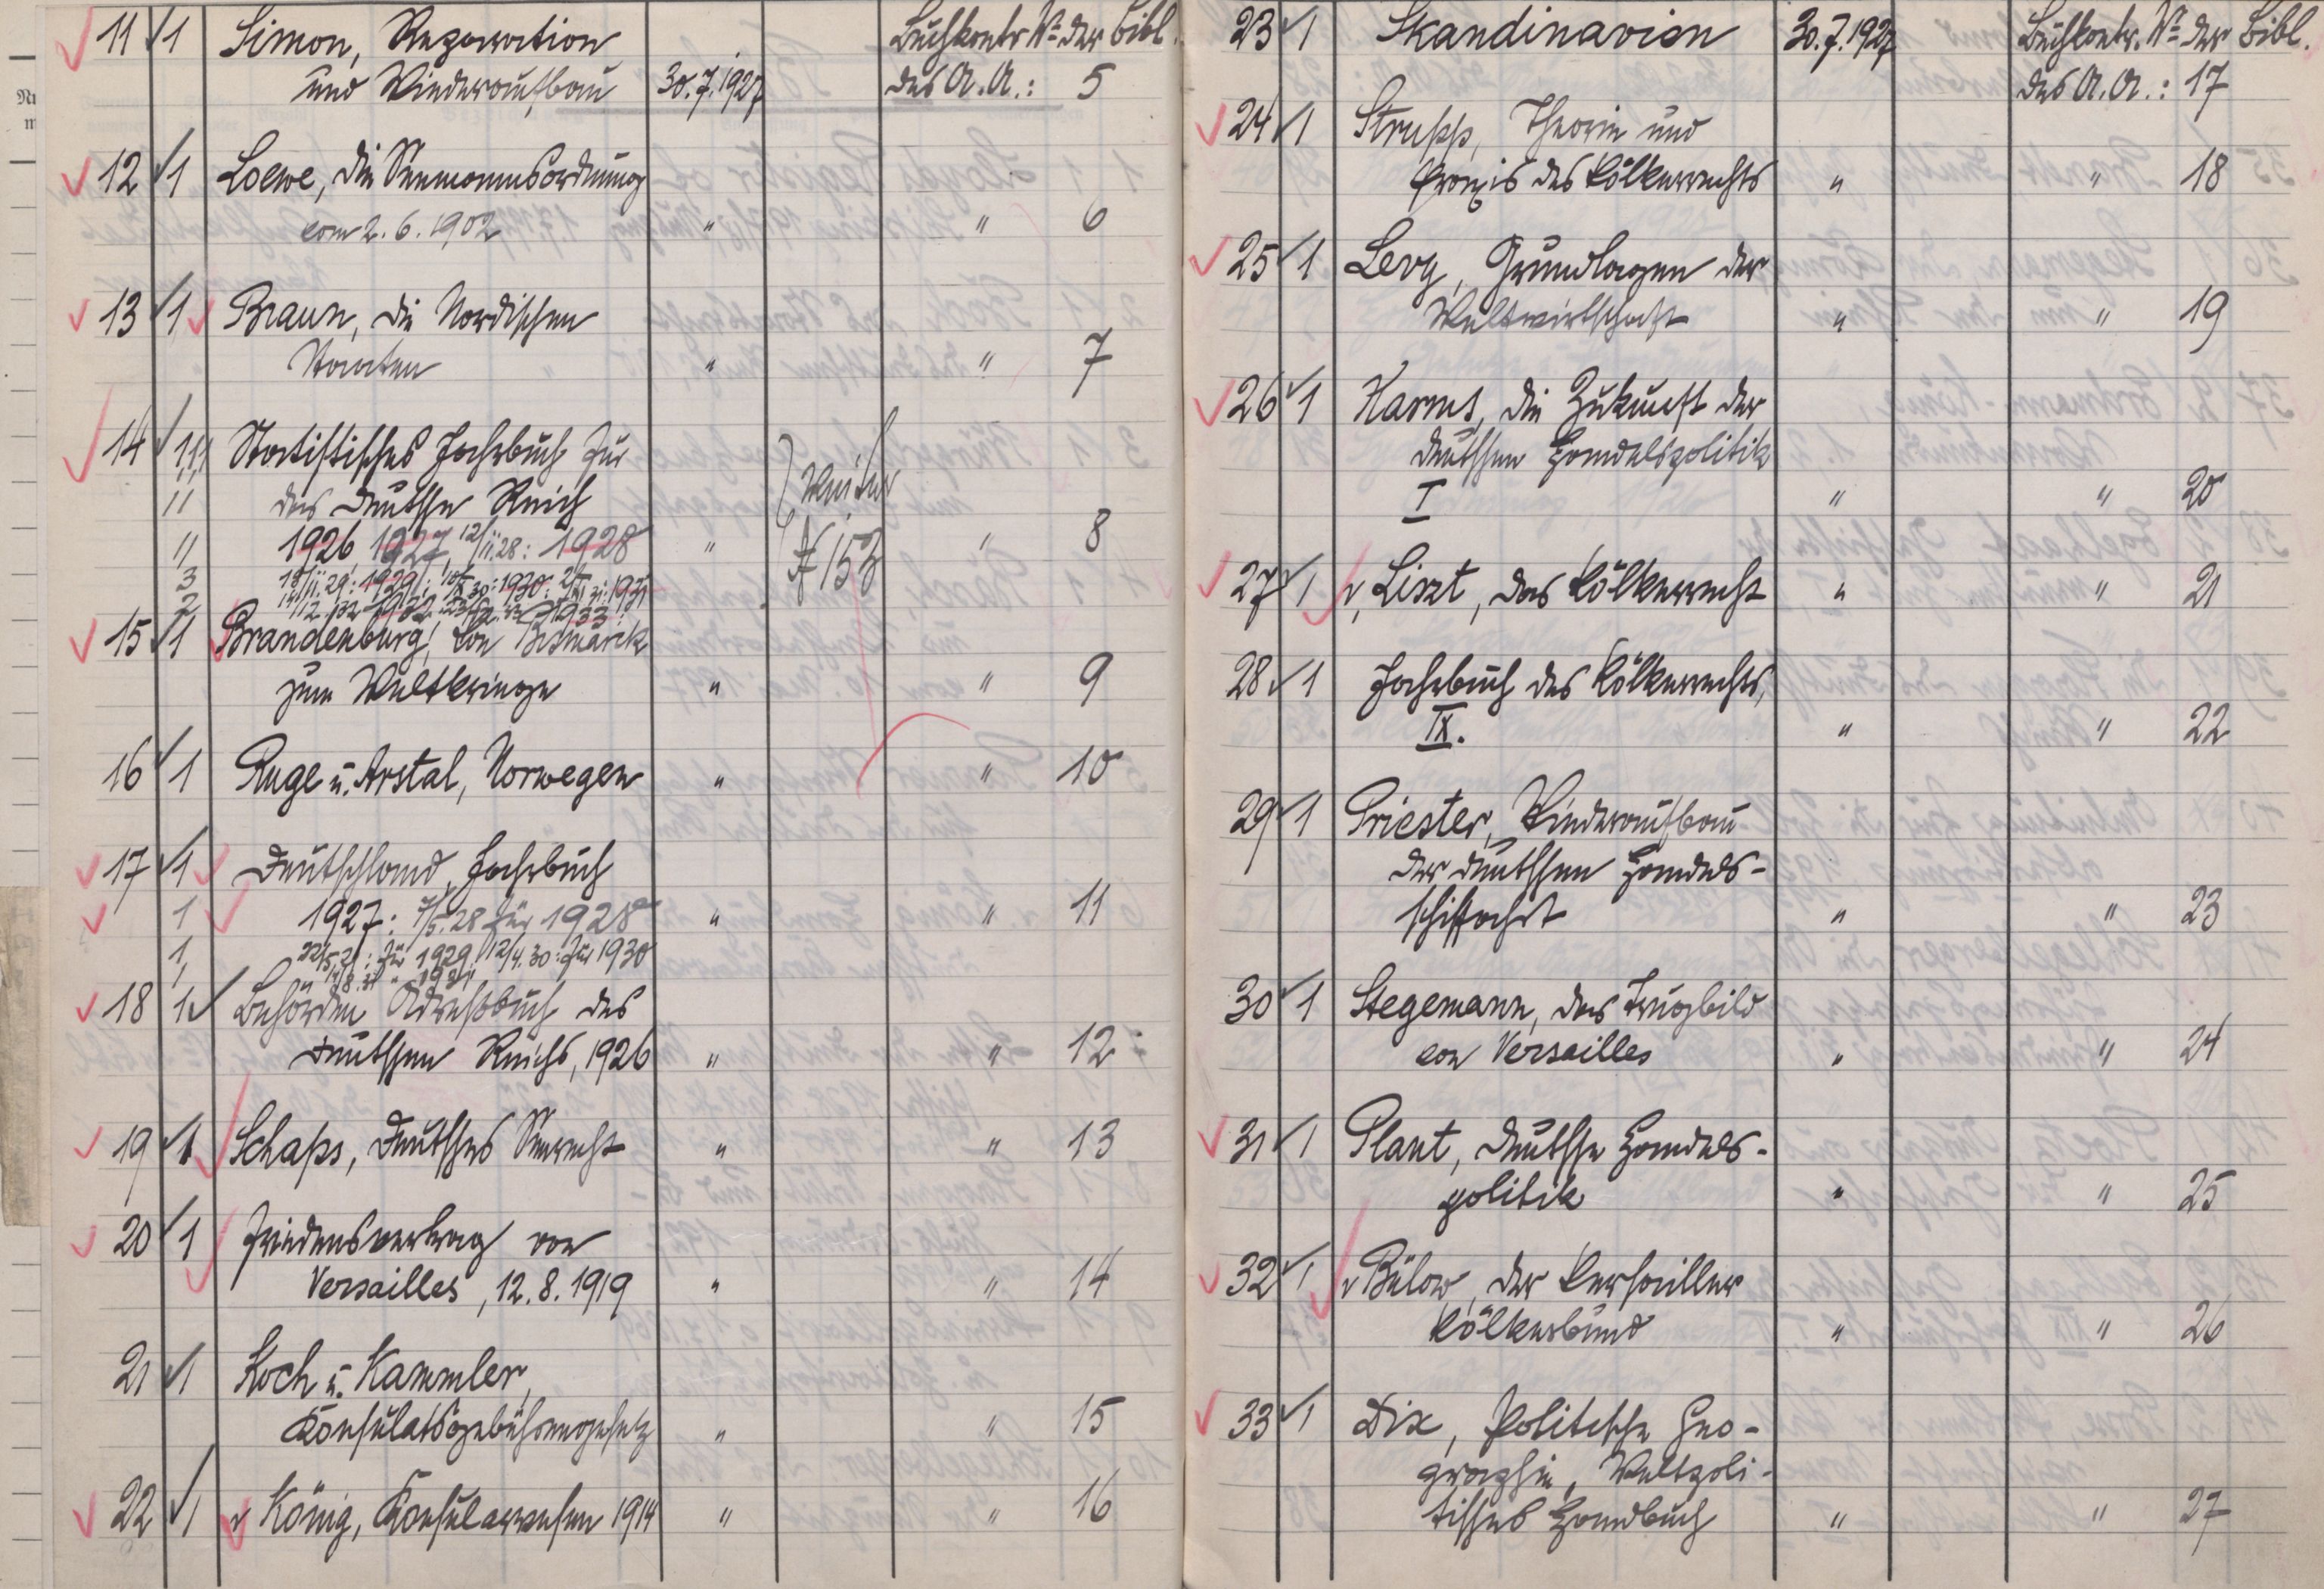 11 1 Simon, Reparation Buchkontr. № der Bibl.
und Wiederaufbau 30.7.1927 des A.A.: 5
12 1 Loewe, die Seemannsordnung
vom 2.6.1902 " " 6
13 1 Braun, die Nordischen
Staaten " " 7
14 1,1,1 Statistisches Jahrbuch für
11 das Deutsche Reich weiter
11 1926, 1927, 12/11.28: 1928 " № 153 " 8
3 18/11.29: 1929; 10/X 30: 1930: 1931
2 14/12.32 1932 1933
15 1 Brandenburg, von Bismarck
zum Weltkriege " " 9
16 1 Ruge u. Arstal, Norwegen " " 10
17 1 Deutschland, Jahrbuch
1 1927: 7/5.28 für 1928 " " 11
1 22/5.29: für 1929, 12/4.30: für 1930
1 14/8.31 " 1931
18 1 Behörden Adreßbuch des
Deutschen Reichs, 1926 " " 12
19 1 Schaps, Deutsches Seerecht " " 13
20 1 Friedensvertrag von
Versailles, 12.8.1919 " " 14
21 1 Koch u. Kammler,
Konsulatsgebührengesetz " " 15
22 1 v König, Konsularwesen 1914 " " 16
23 1 Skandinavien 30.7.1927 Buchkontr. № der Bibl.
des A.A.: 17
24 1 Strupp, Theorie und
Praxis des Völkerrechts " " 18
25 1 Levy, Grundlagen der
Weltwirtschaft " " 19
26 1 Harms, die Zukunft der
deutschen Handelspolitik
I " " 20
27 1 v. Liszt, das Völkerrecht " " 21
28 1 Jahrbuch des Völkerrechts,
IX. " " 22
29 1 Priester, Wiederaufbau
der deutschen Handels-
schiffahrt " " 23
30 1 Stegemann, das Trugbild
von Versailles " " 24
31 1 Plant, deutsche Handels-
politik " " 25
32 1 v Bülow, der Versailler
Völkerbund " " 26
33 1 Dix, Politische Geo-
graphie, Weltpoli-
tisches Handbuch " " 27